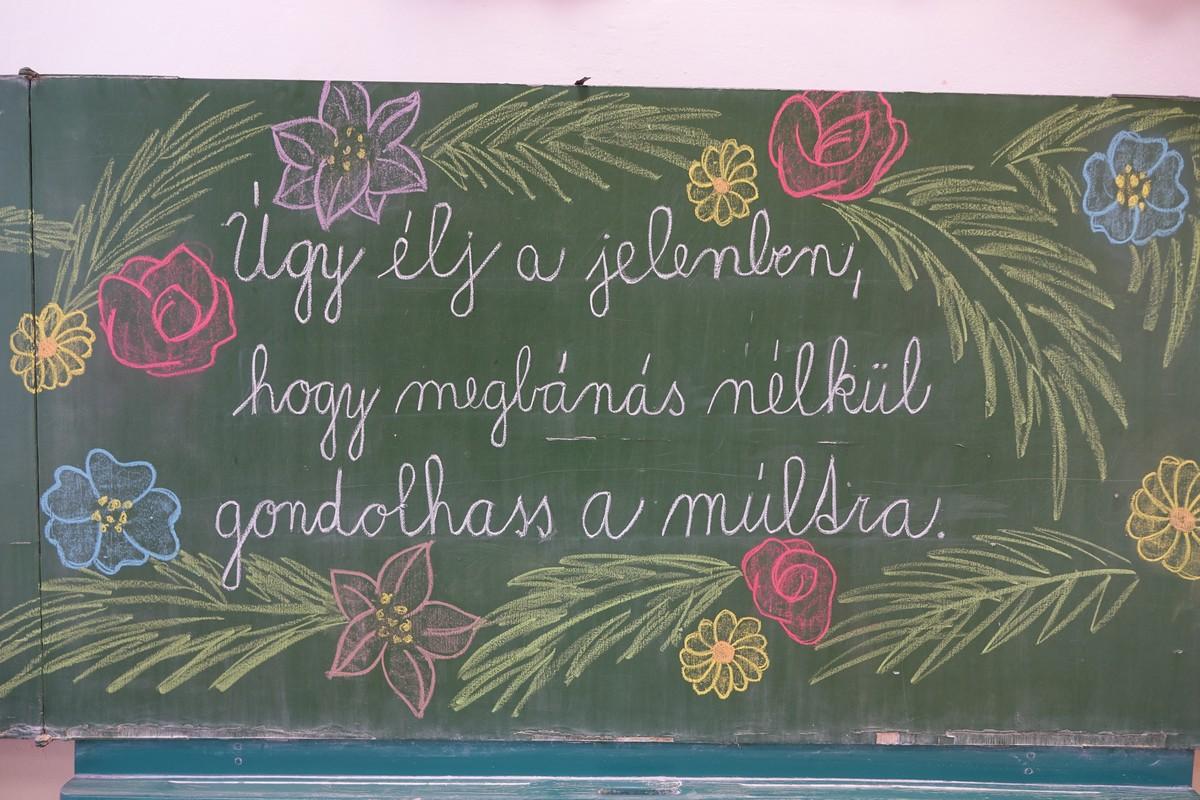 Úgy élj a jelenben,
hogy megbánás nélkül
gondolhass a múltra.